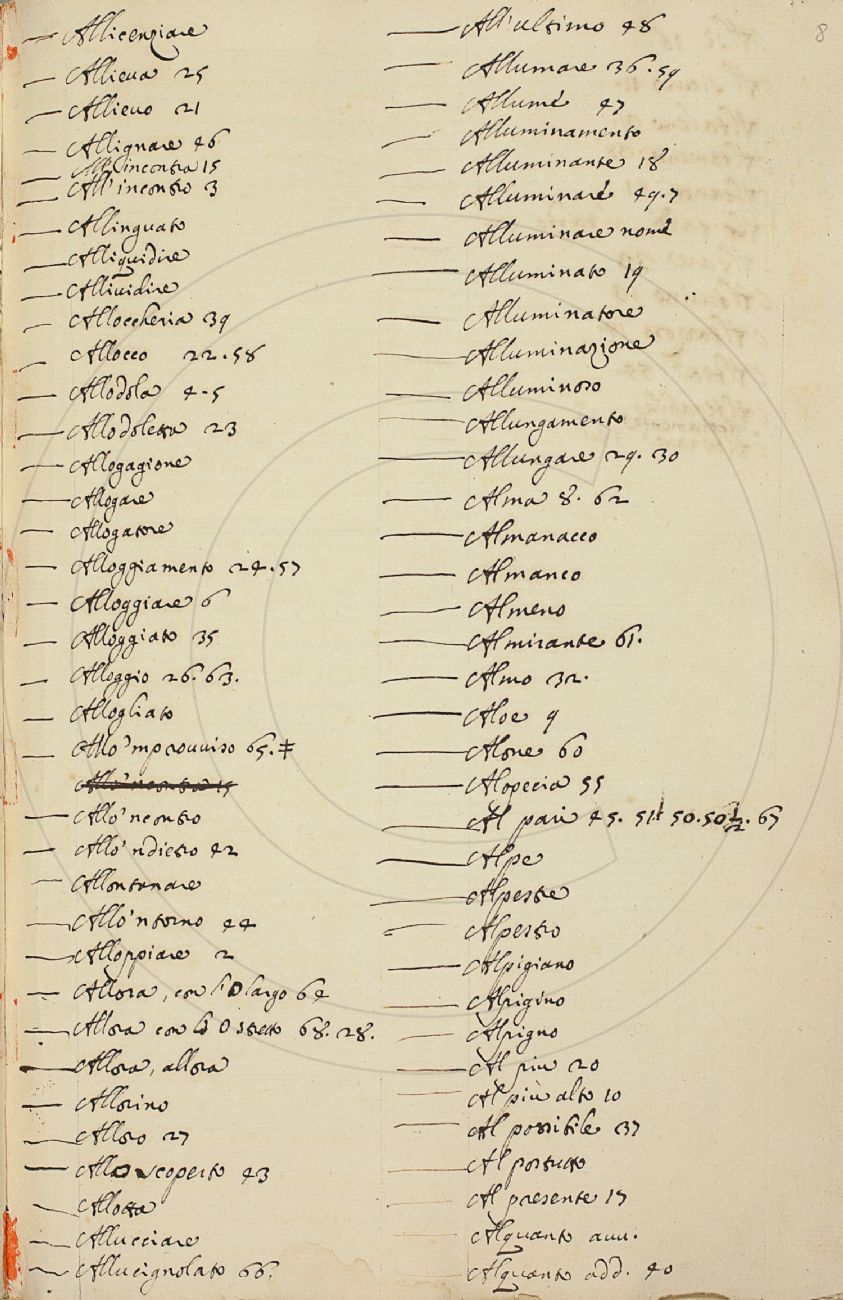 8
— Allicenziare
— Allieua 25
— Allieuo 21
— Allignare 46
— All'incontra 15
— All'incontro 3
— Allinguato
— Alliquidire
— Alliuidire
— Alloccheria 39
— Allocco 22.58
— Allodola 4-5
— Allodoletta 23
— Allogagione
— Allogare
— Allogatore
— Alloggiamento 24.57
— Alloggiare 6
— Alloggiato 35
— Alloggio 26.63.
— Allogliato
— Allo'mprouuiso 65.‡
Allo'ncontra 15
— Allo'ncontro
— Allo'ndietro 42
— Allontanare
— Allo'ntorno 44
— Alloppiare 2
— Allora, con l'O largo 64
— Allora con l'O stretto 68.28.
— Allora, allora
— Allorino
— Alloro 27
— Allo scoperto 43
— Allotta
— Allucciare
— Allucignolato 66.
— All'ultimo 48
— Allumare 36.59
— Allumé 47
— Alluminamento
— Alluminante 18
— Alluminaré 49.7
— Alluminare nomé
— Alluminato 19
— Alluminatore
— Alluminazione
— Alluminoso
— Allungamento
— Allungare 29.30
— Alma 8.62
— Almanacco
— Almanco
— Almeno
— Almirante 61.
— Almo 32.
— Aloe 9
— Alone 60
— Alopecia 55
— Al pari 45. 51 50.50½.65
— Alpe
— Alpestre
— Alpestro
— Alpigiano
— Alpigino
— Alpigno
— Al piu 20
— Al più alto 10
— Al possibile 37
— Al postutto
— Al presente 17
— Alquanto auu.
— Alquanto add. 40